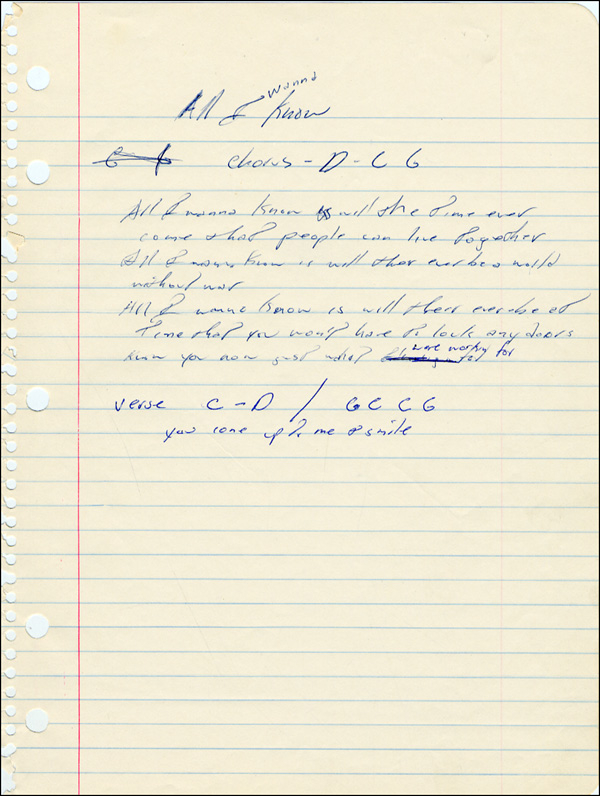 wanna
All I know
G G chorus - D - C G
All I wanna know is will the time ever
come that people can live together
All I wanna know is will ther ever be a world
without war
All I wanna know is will therr ever be at
time that you won't have to lock any doors
know you now just what were working for
for
verse C - D / G C C G
you come up to me & smile